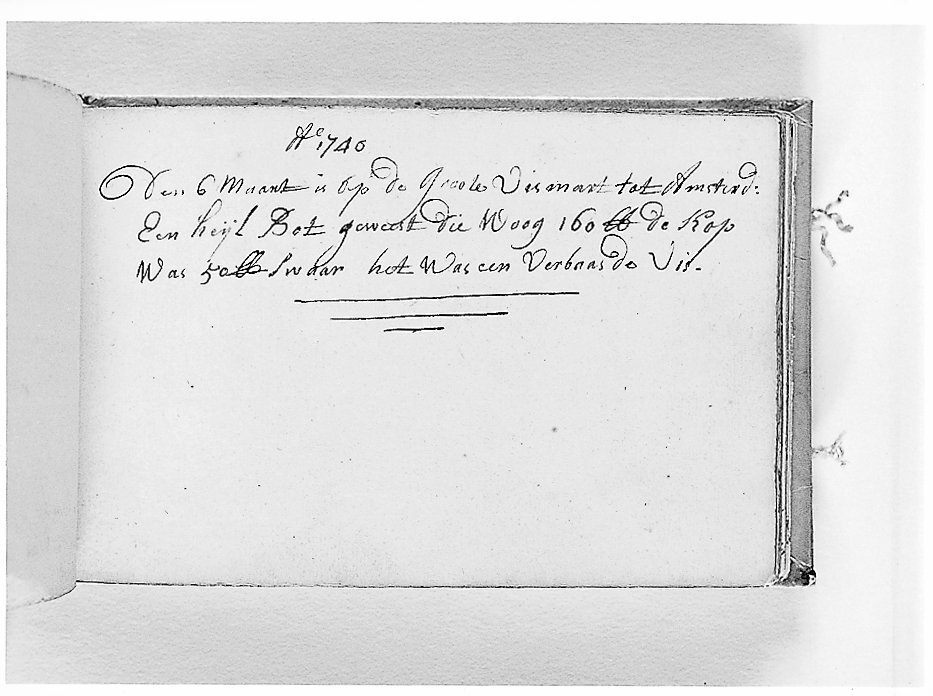 Ao 1740
Den 6 Maart is op de Groote Vismart tot Amsterd:
Een heijl Bot geweest die Woog 160 lb de Kop
Was 50 lb Swaar het Was een Verbaasde Vis.